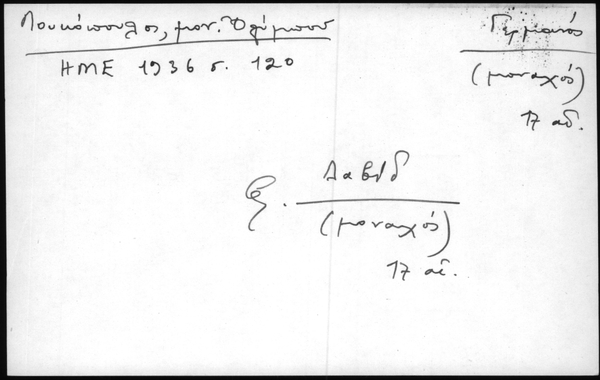 Λουκόπουλος, μον. Ὀλύμπου
ΗΜΕ 1936 σ. 120
Γερμανός
(μοναχός)
17 αἰ.
Δαβίδ
(μοναχός)
17 αἰ.